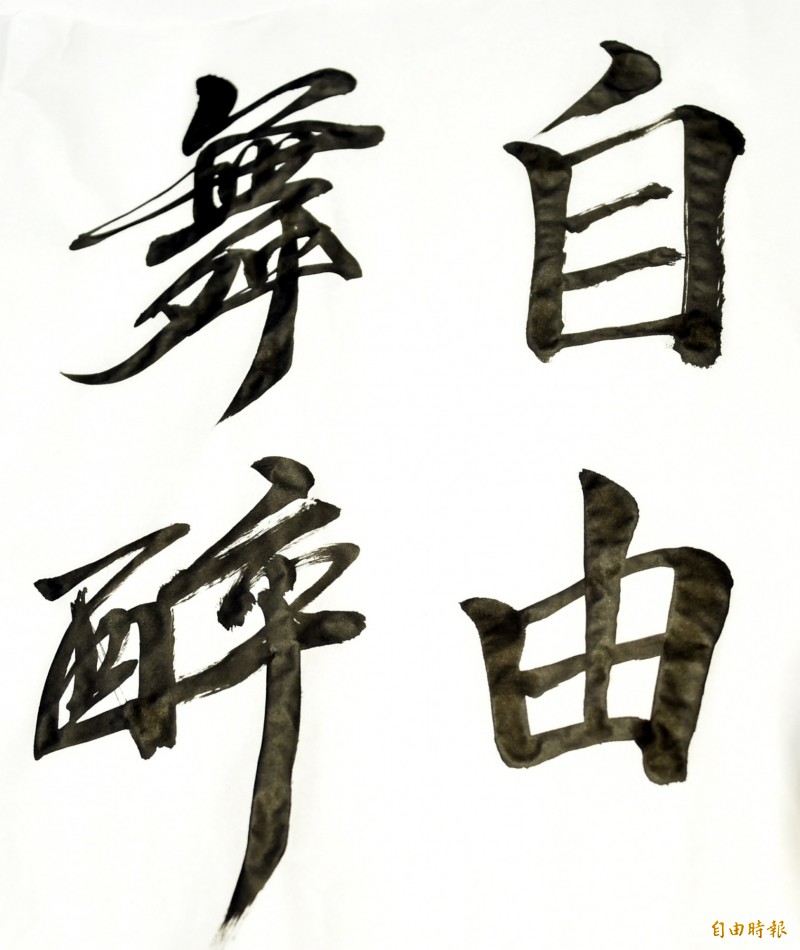 自由
舞醉
自由時報